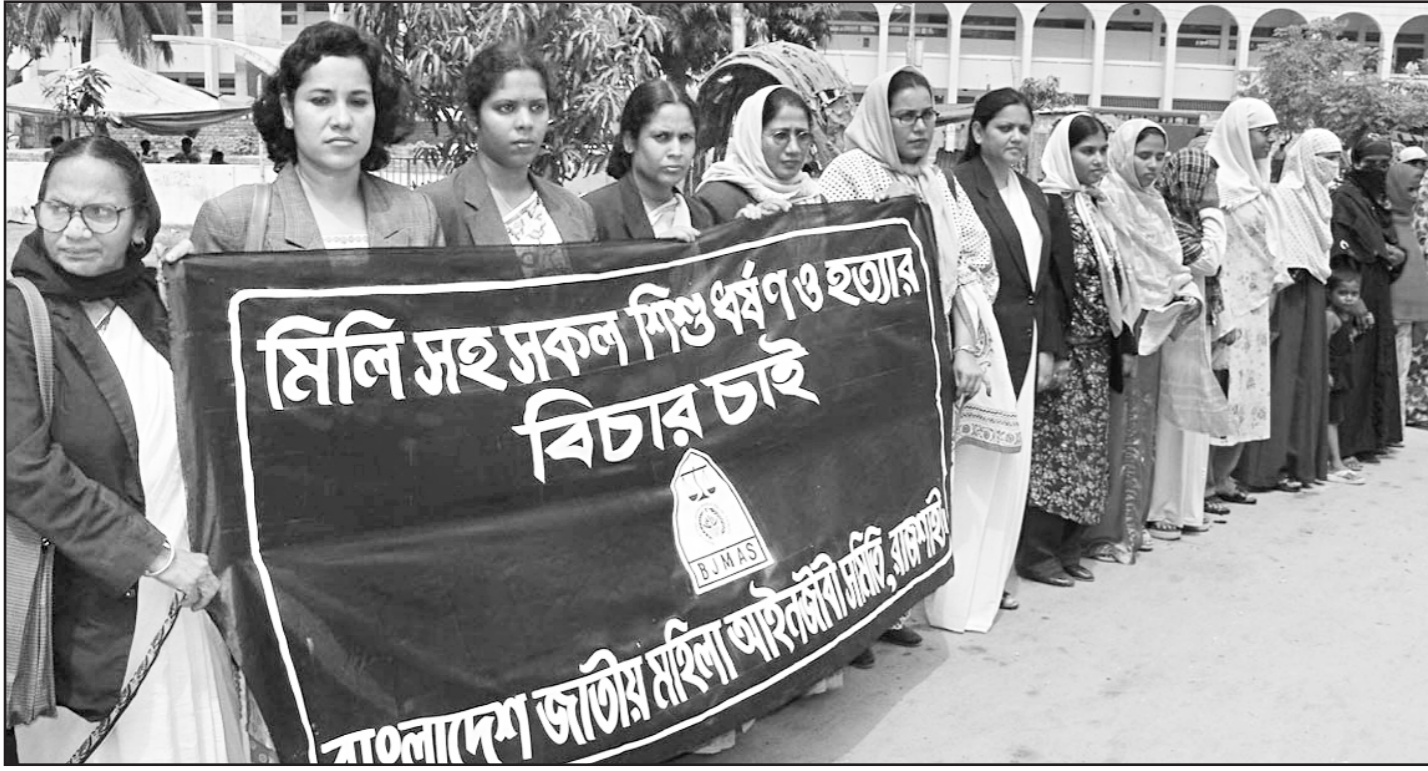 মিলি সহ সকল শিশু ধর্ষণ ও হত্যার
বিচার চাই
BJMAS
বাংলাদেশ জাতীয় মহিলা আইনজীবী সমিতি, রাজশাহী